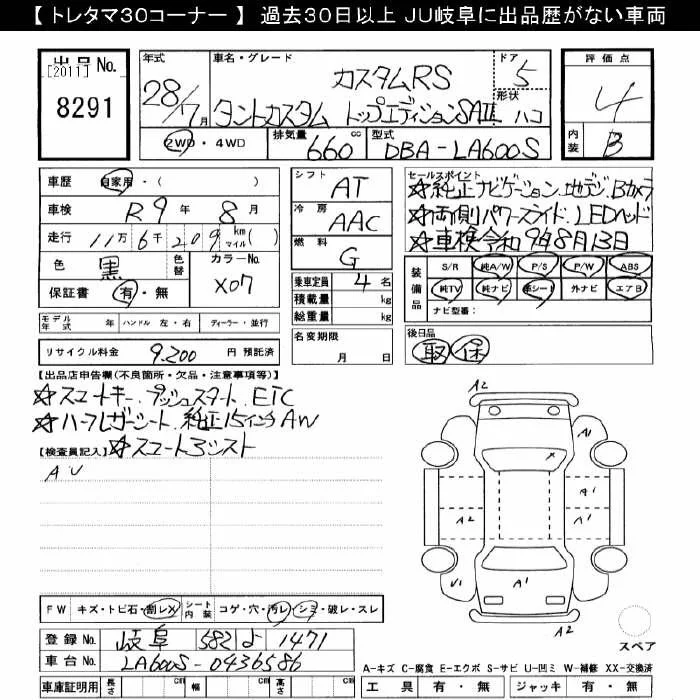 【 トレタマ30コーナー 】 過去30日以上 JU岐阜に出品歴がない車両
出品 No.
【2011】
8291
年式
28/7月
車名・グレード
カスタムRS
タントカスタム トップエディションSAⅡ
ドア
5
形状
ハコ
2WD・4WD
排気量
660 cc
型式
DBA-LA600S
評価点
4
内装
B
車歴 自家用・( )
車検 R9年 8月
走行 11万6千209 km マイル( )
色 黒 色替
カラーNo. X07
保証書 有・無
モデル年式 年 ハンドル 左・右 ディーラー・並行
リサイクル料金 9,200 円 預託済
シフト AT
冷房 AAC
燃料 G
乗車定員 4 名
積載量 kg
総重量 kg
名変期限
月 日
セールスポイント
☆純正ナビゲーション.地デジ.Bカメラ
☆両側パワースライド.LEDヘッド
☆車検令和9年8月13日
装備品
S/R 純A/W P/S P/W ABS
純TV 純ナビ 革シート 外ナビ エアB
ナビ型番:
後日品
取 保
【出品店申告欄(不良箇所・欠品・注意事項等)】
☆スマートキー.プッシュスタート.ETC
☆ハーフレザーシート.純正15インチAW
【検査員記入】
☆スマートアシスト
A U
A2
A1
A1
A2
A1
A1
U1
A2
スペア
FW キズ・トビ石・割レX シート内装 コゲ・穴・汚レ・シミ・破レ・スレ
登録 No. 岐阜 582 よ 1471
車台 No. LA600S-0436586
車庫証明用 長さ cm 幅 cm 高さ cm
A-キズ C-腐食 E-エクボ S-サビ U-凹ミ W-補修 XX-交換済
工具 有・無 ジャッキ 有・無